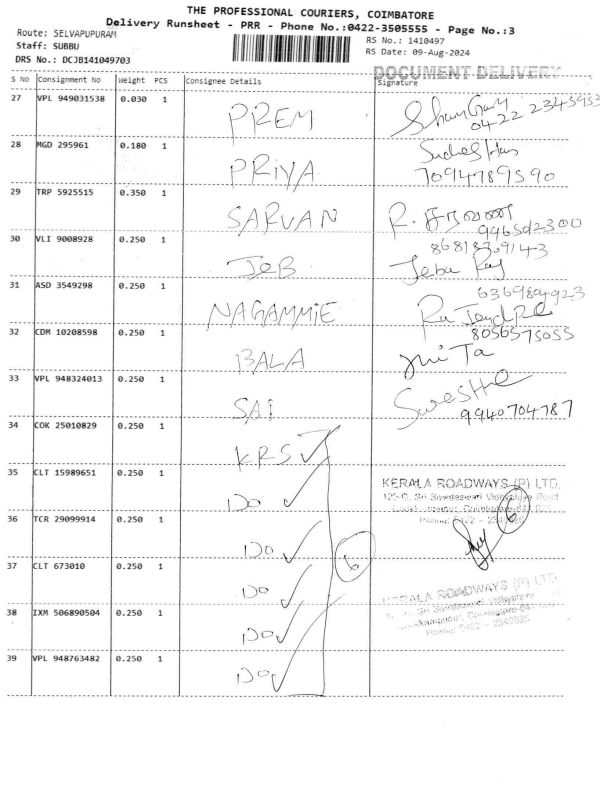 THE PROFESSIONAL COURIERS, COIMBATORE
Delivery Runsheet - PRR - Phone No.:0422-3505555 - Page No.:3
Route: SELVAPUPURAM
RS No.: 1410497
Staff: SUBBU
RS Date: 09-Aug-2024
DRS No.: DCJB141049703
DOCUMENT DELIVERY
S No Consignment No Weight PCS Consignee Details Signature
27 VPL 949031538 0.030 1 PREM
28 MGD 295961 0.180 1 PRIYA 7094789590
29 TRP 5925515 0.350 1 SARVAN R. சரவணன்
996502300
30 VLI 9008928 0.250 1 JEB Jeba Raj
31 ASD 3549298 0.250 1 NAGAMMIE
636984923
32 CDM 10208598 0.250 1 BALA
8056575055
33 VPL 948324013 0.250 1 SAI
9940704787
34 COK 25010829 0.250 1 KRS ✓
35 CLT 15989651 0.250 1 DO ✓ KERALA ROADWAYS (P) LTD.
36 TCR 29099914 0.250 1 DO ✓ 6 6
37 CLT 673010 0.250 1 DO ✓
KERALA ROADWAYS (P) LTD
38 IXM 506890504 0.250 1 DO ✓
39 VPL 948763482 0.250 1 DO ✓